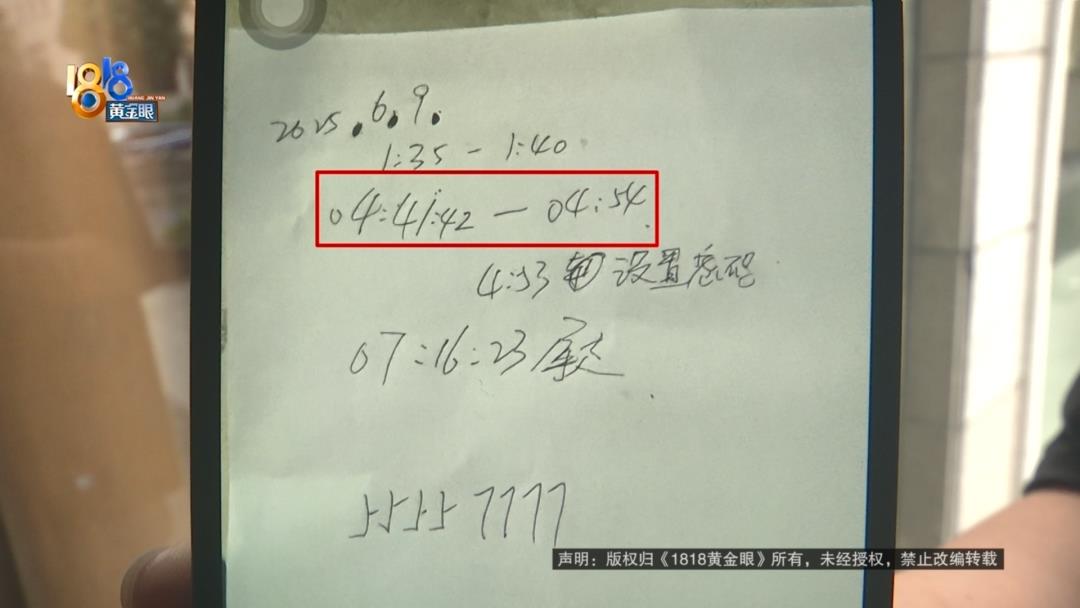 1818
HUANG JIN YAN
黄金眼
2025.6.9.
1:35 - 1:40
04:41:42 — 04:54.
4:53 设置密码
07:16:23
55557777
声明：版权归《1818黄金眼》所有，未经授权，禁止改编转载